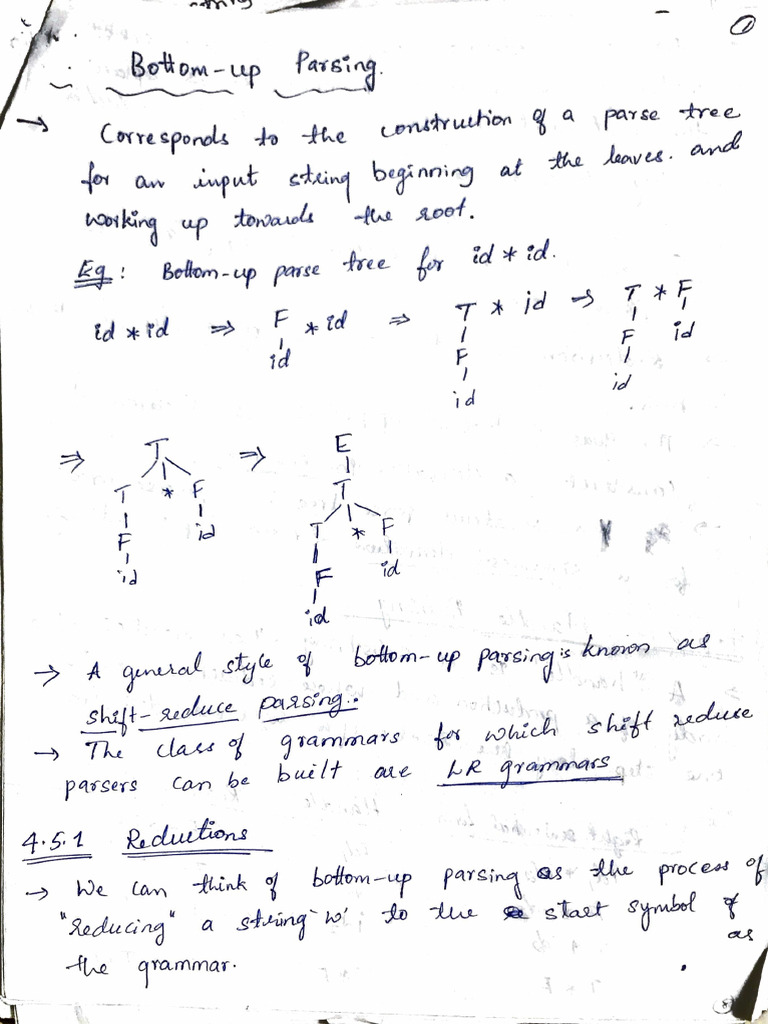 ①
Bottom-up Parsing.
→ Corresponds to the construction of a parse tree
for an input string beginning at the leaves. and
working up towards the root.
Eg: Bottom-up parse tree for id * id.
id * id ⇒ F * id ⇒ T * id ⇒ T * F
id F F id
id id
⇒ T ⇒ E
T * F T
F id T * F
id F id
id
→ A general style of bottom-up parsing is known as
shift-reduce parsing..
→ The class of grammars for which shift reduce
parsers can be built are LR grammars
4.5.1 Reductions
→ We can think of bottom-up parsing as the process of
"reducing" a string 'w' to the start symbol of
the grammar. as